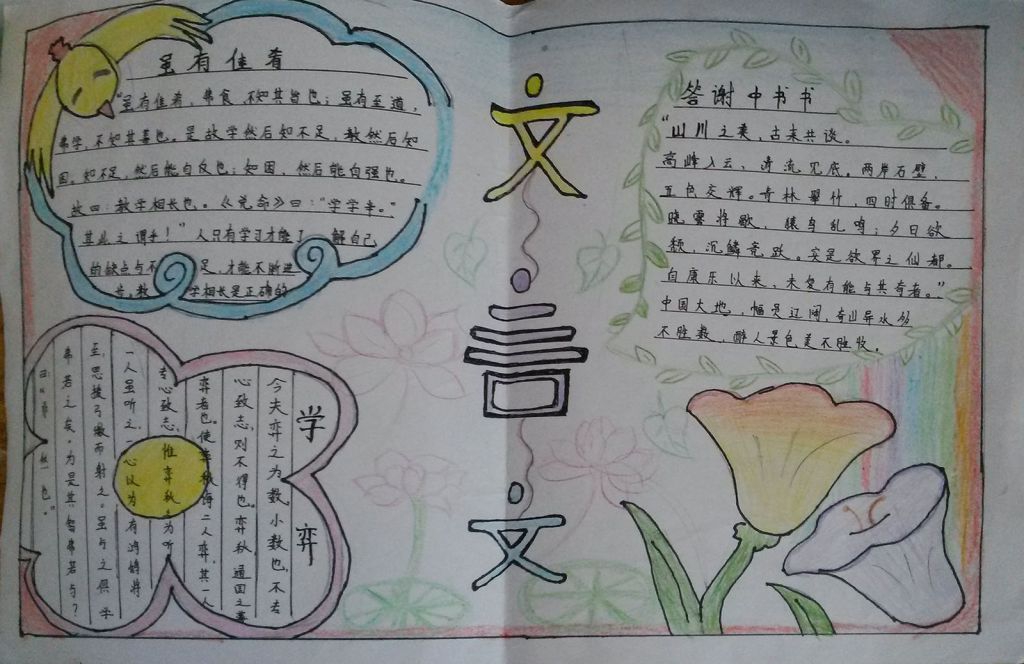 虽有佳肴
"虽有佳肴，弗食，不知其旨也；虽有至道，
弗学，不知其善也。是故学然后知不足，教然后知
困。知不足，然后能自反也；知困，然后能自强也。
故曰：教学相长也。《兑命》曰："学学半。"
其此之谓乎！"人只有学习才能了解自己
的缺点与不足，才能不断进
学相长是正确的
文言文
答谢中书书
"山川之美，古来共谈。
高峰入云，清流见底。两岸石壁，
五色交辉。青林翠竹，四时俱备。
晓雾将歇，猿鸟乱鸣；夕日欲
颓，沉鳞竞跃。实是欲界之仙都。
自康乐以来，未复有能与其奇者。"
中国大地，幅员辽阔，奇山异水
不胜数，醉人景色美不胜收。
学弈
今夫弈之为数，小数也，不专
心致志，则不得也。弈秋，通国之善
弈者也。使弈秋诲二人弈，其一人
专心致志，惟弈秋之为听
一人虽听之，一心以为有鸿鹄将
至，思援弓缴而射之。虽与之俱学
弗若之矣。为是其智弗若与？
曰：然也。"